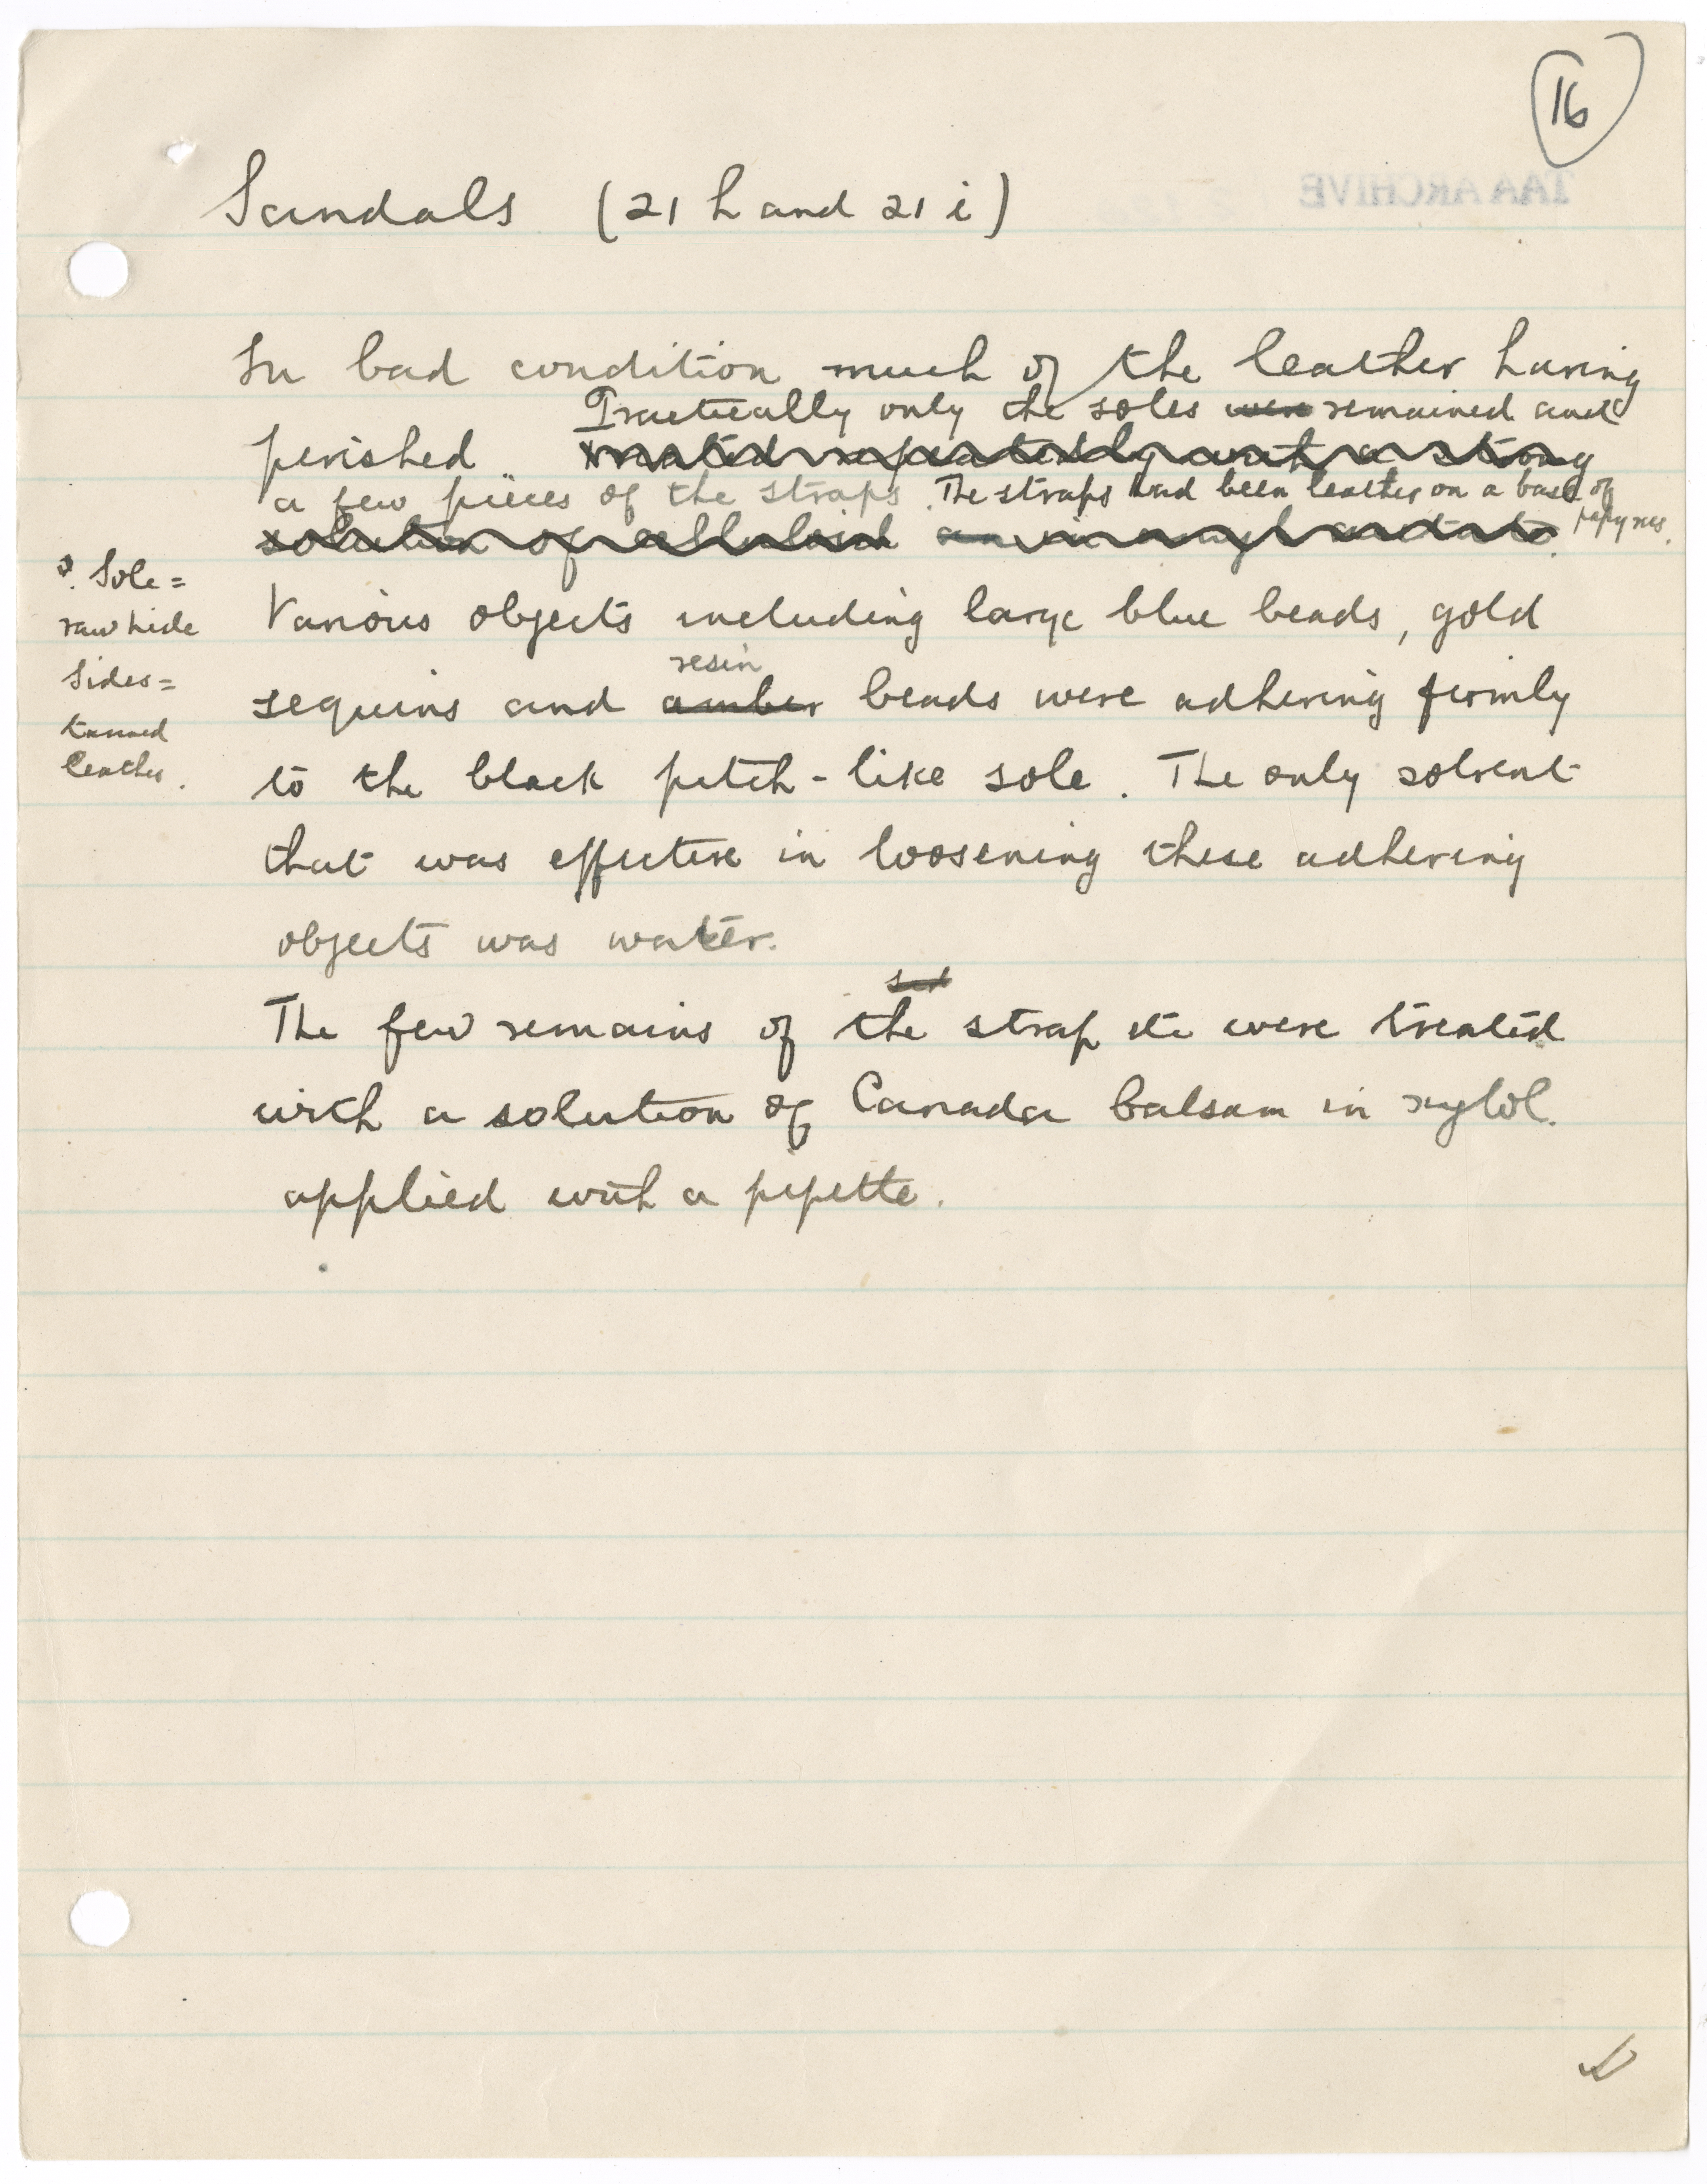 16
TAA ARCHIVE
Sandals (21 h and 21 i)
In bad condition much of the leather having
Practically only the soles were remained and
perished. treated repeatedly with a strong
a few pieces of the straps. The straps had been leather on a base of
papyrus.
solution of celluloid in amyl acetate.
?. Sole =
rawhide
Sides =
tanned
leather.
Various objects including large blue beads, gold
resin
sequins and amber beads were adhering firmly
to the black pitch-like sole. The only solvent
that was effective in loosening these adhering
objects was water.
The few remains of the strap etc were treated
with a solution of Canada balsam in xylol.
applied with a pipette.